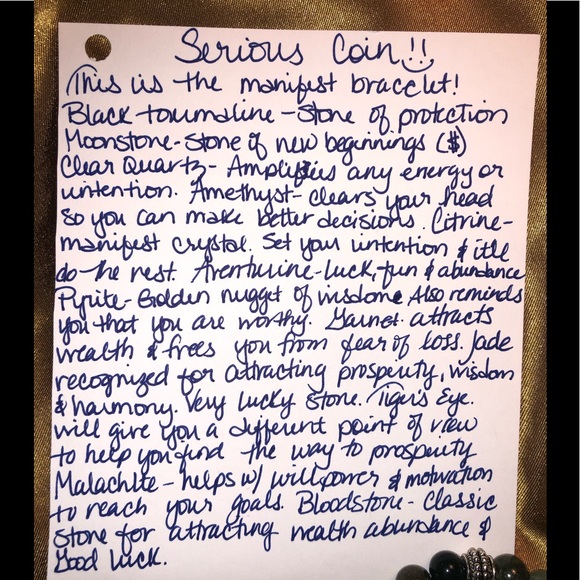 Serious Coin!!
This is the manifest bracelet!
Black tourmaline - Stone of protection
Moonstone - Stone of new beginnings ($)
Clear Quartz - Amplifies any energy or
intention. Amethyst - clears your head
so you can make better decisions. Citrine -
manifest crystal. Set your intention & itll
do the rest. Aventurine - luck, fun & abundance
Pyrite - Golden nugget of wisdom. Also reminds
you that you are worthy. Garnet - attracts
wealth & frees you from fear of loss. Jade
recognized for attracting prosperity, wisdom
& harmony. Very lucky stone. Tiger's Eye.
will give you a different point of view
to help you find the way to prosperity
Malachite - helps w/ willpower & motivation
to reach your goals. Bloodstone - Classic
stone for attracting wealth abundance &
Good luck.